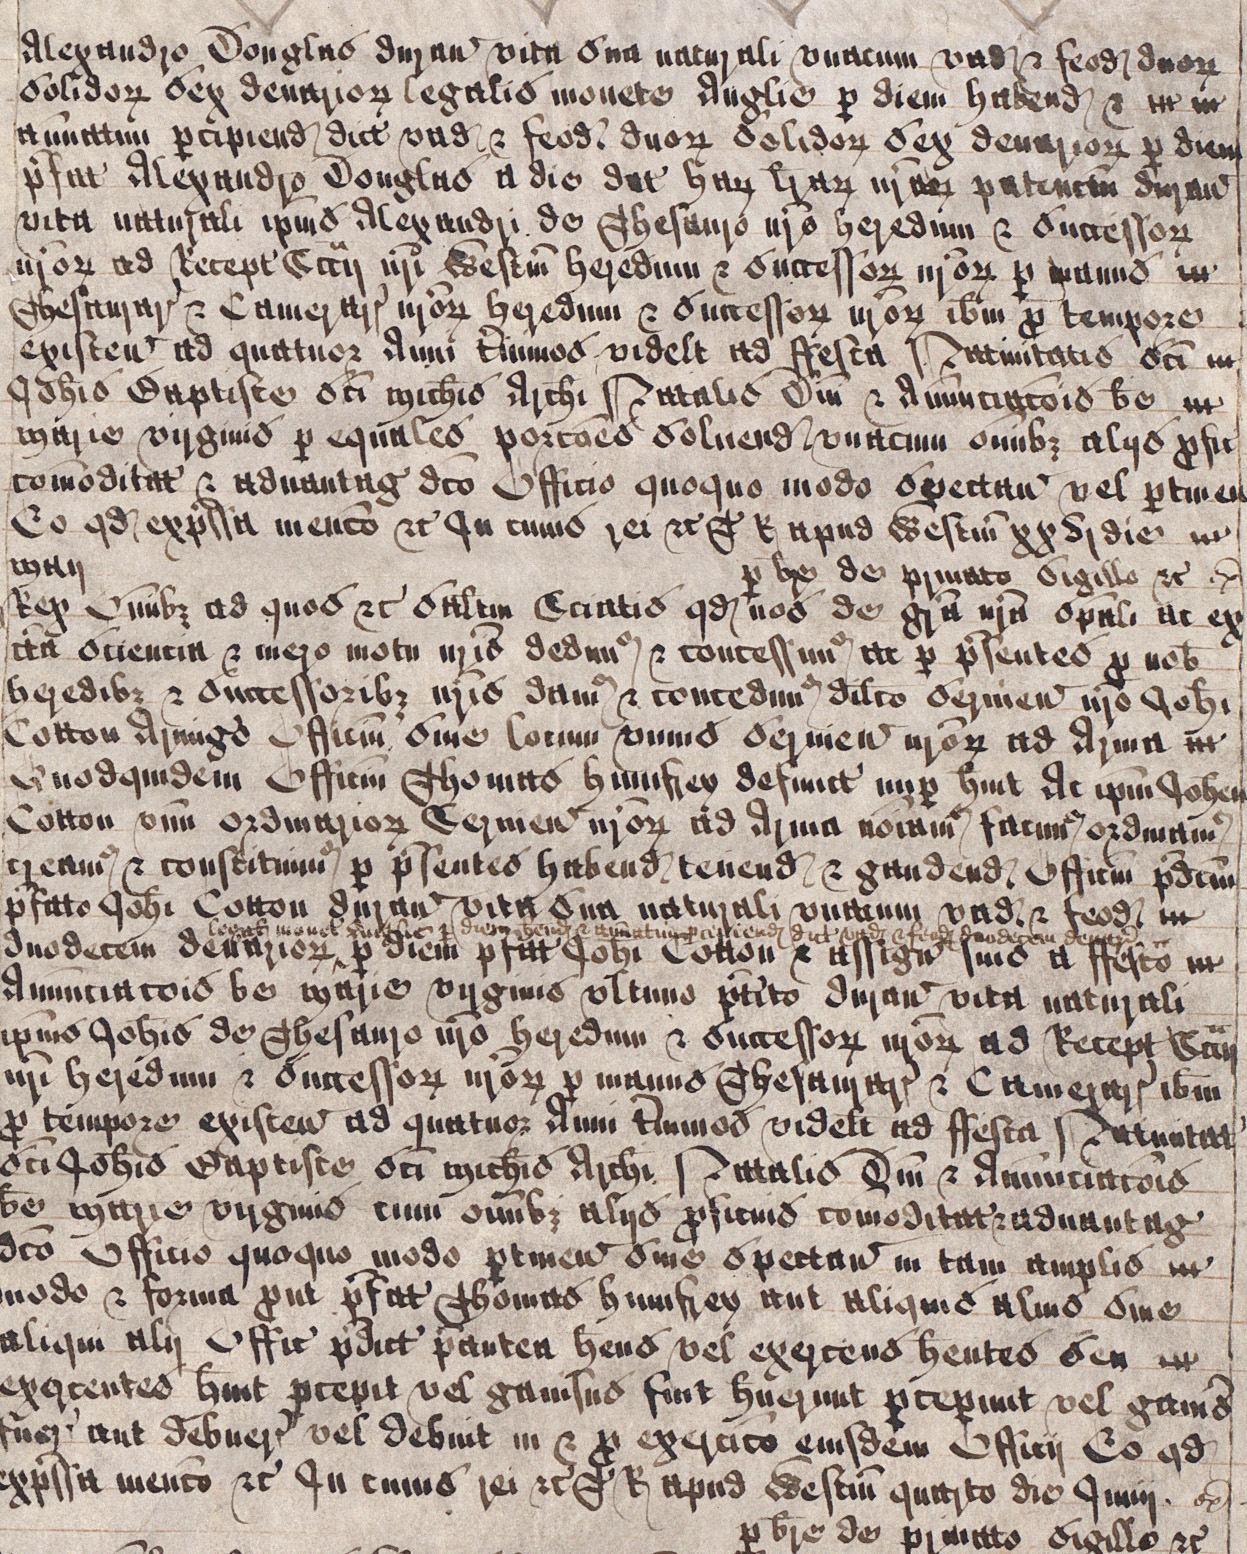 Alexandro Douglas duran' vita sua naturali vnacum vad' & feod' duoꝝ
Solidoꝝ Sex denarioꝝ legalis monete Anglie ꝑ diem habend' &
annuatim ꝑcipiend' dict' vad' & feod' duoꝝ Solidoꝝ Sex denarioꝝ ꝑ diem
p̃fat' Alexandro Douglas a die dat' haꝝ l̃raꝝ nr̃aꝝ patentiũ duran'
vita naturali ip̃ius Alexandri de Thesauro nr̃o heredum & Successoꝝ
nr̃oꝝ ad Recept' Sccĩj nr̃i Westm̃ heredum & Successoꝝ nr̃oꝝ ꝑ manus
Thesaurar' & Camerar' nr̃oꝝ heredum & Successoꝝ nr̃oꝝ ib̃m ꝓ tempore
existen' ad quatuor Anni t̃minos videlt ad ffesta Natiuitatis Sc̃i
Joh̃is Baptiste Sc̃i Mich̃is Arch̃i Natalis Dñi & Annunciac̃ois b̃e
Marie virginis ꝑ equales porc̃oes Soluend' vnacum om̃ibꝫ alijs ꝓfic'
com̃oditat' & aduantag' dc̃o Officio quoquo modo Spectan' vel ꝑtinen'
Eo qd' exp̃ssa menc̃o &c̃ In cuius rei &c̃ T R apud Westm̃ xxvj die
Maij
ꝑ br̃e de priuato Sigillo &c̃
Rex Om̃ibꝫ ad quos &c̃ Salt̃m Sciatis qd' nos de gr̃a nr̃a sp̃ali ac ex
c̃ta Sciencia & mero motu nr̃is dedimꝰ & concessimꝰ ac ꝑ p̃sentes ꝓ nob̃
heredibꝫ & Successoribꝫ nr̃is damꝰ & concedimꝰ dilc̃o Seruien' nr̃o Joh̃i
Cotton Armig'o Officiũ Siue locum vnius Seruien' nr̃oꝝ ad Arma
Quodquidem Officiũ Thomas Humfrey defunct' nuꝑ h̃uit Ac ip̃m Joh̃em
Cotton vnũ ordinarioꝝ Seruien' nr̃oꝝ ad Arma no̅iamꝰ facimꝰ ordinamꝰ
creamꝰ & constituimꝰ ꝑ p̃sentes habend' tenend' & gaudend' Officiũ p̃dc̃m
p̃fato Joh̃i Cotton duran' vita Sua naturali vnacum vad' & feod'
legal' monet' Anglie ꝑ diem h̃end' & annuatim ꝑcipiend' dict' vad' & feod' duodecem denar'
duodecem denarioꝝ ꝑ diem p̃fat' Joh̃i Cotton & assign' suis a ffesto
Annunciac̃ois b̃e Marie virginis vltimo p̃t̃ito duran' vita naturali
ip̃ius Joh̃is de Thesauro nr̃o heredum & Successoꝝ nr̃oꝝ ad Recept' Sccĩj
nr̃i heredum & Successoꝝ nr̃oꝝ ꝑ manus Thesaurar' & Camerar' ib̃m
ꝓ tempore existen' ad quatuor Anni t̃minos videlt ad ffesta Natiuitat'
Sc̃i Joh̃is Baptiste Sc̃i Mich̃is Arch̃i Natalis Dñi & Annunciac̃ois
b̃e Marie virginis cum om̃ibꝫ alijs ꝓficuis comoditat' & aduantag'
dc̃o Officio quoquo modo ꝑtinen' Siue Spectan' in tam amplis
modo & forma ꝓut p̃fat' Thomas Humfrey aut aliquis alius Siue
aliqui alij Offic' p̃dict' p̃antea h̃ens vel exercens h̃entes Seu
exercentes h̃uit ꝑcepit vel gauisus fuit h̃uerunt ꝑceperunt vel gauis̃
fuer' aut debuer' vel debuit in & ꝓ exercic̃o eiusdem Officij Eo qd'
exp̃ssa menc̃o &c̃ In cuius rei &c̃ T R apud Westm̃ quarto die Junij.
ꝑ br̃e de priuato Sigillo &c̃